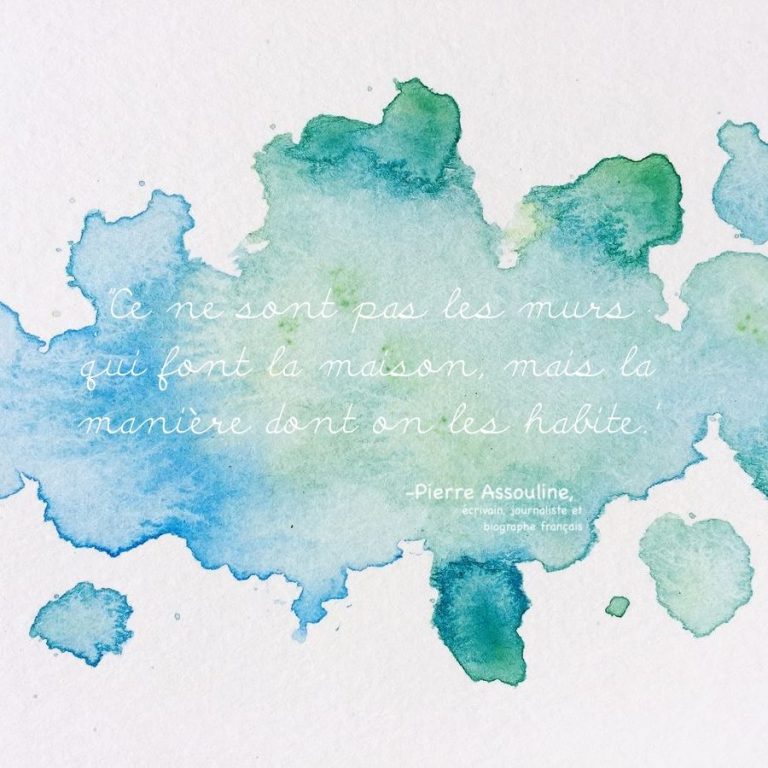 "Ce ne sont pas les murs
qui font la maison, mais la
manière dont on les habite."
-Pierre Assouline,
écrivain, journaliste et
biographe français